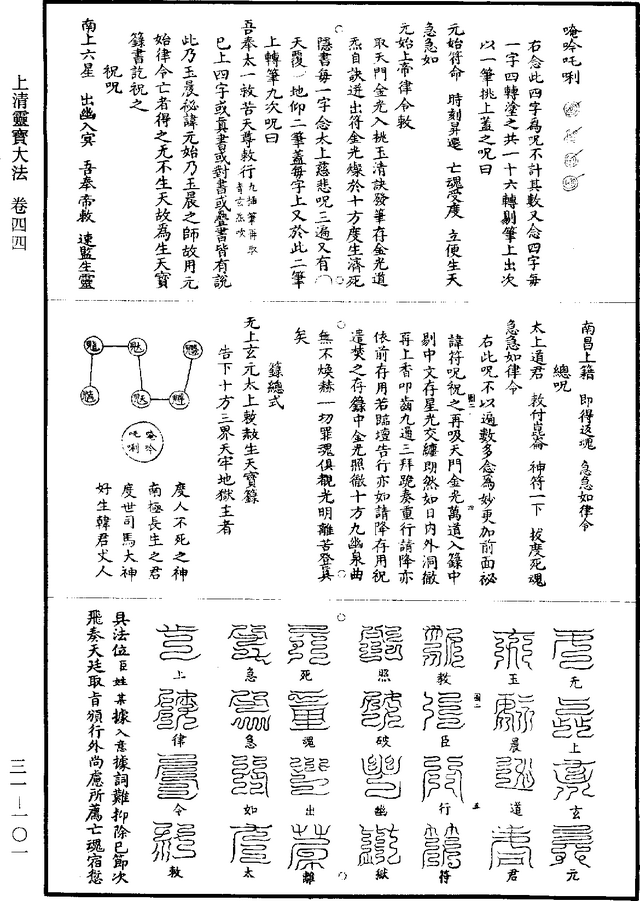 上清靈寶大法 卷四四
三一—一〇一
唵吟吒唎
右念此四字為呪不計其數又念四字每
一字四轉塗之共一十六轉剔筆上出次
以一筆挑上蓋之呪曰
元始符命 時刻昇遷 亡魂受度 立便生天
急急如
元始上帝律令敕
取天門金光入挑玉清訣發筆存金光道
炁自訣迸出符金光燦於十方度生濟死
隱書每一字念太上慈悲呪三遍又有︵
天覆︶地仰二筆蓋每字上又於此二筆
上轉筆九次呪曰
吾奉太一救苦天尊敕行
已上四字或真書或對書或疊書皆有說
此乃玉晨祕諱元始乃玉晨之師故用元
始律令亡者得之无不生天故為生天寶
籙書訖祝之
祝呪
南上六星 出幽入冥 吾奉帝敕 速監生靈
南昌上籍 即得返魂 急急如律令
總呪
太上道君 敕付崑崙 神符一下 拔度死魂
急急如律令
右此呪不以遍數多念為妙更加前面祕
諱符呪祝之再吸天門金光萬道入籙中
剔中文存星光交纏朗然如日內外洞徹
再上香叩齒九通三拜跪奏重行請降亦
依前存用若臨壇告行亦如請降存用祝
遣焚之存籙中金光照徹十方九幽泉曲
無不煥赫一切罪魂俱覩光明離苦登真
矣
籙總式
无上玄元太上敕赦生天寶籙
告下十方三界天牢地獄主者
唵吟
吒唎
度人不死之神
南極長生之君
度世司馬大神
好生韓君丈人
无上玄元
玉晨道君
敕臣行符
照破幽獄
死魂出離
急急如太
上律令敕
具法位臣姓某據入意據詞難抑除已節次
飛奏天廷取旨頒行外尚慮所薦亡魂宿愆